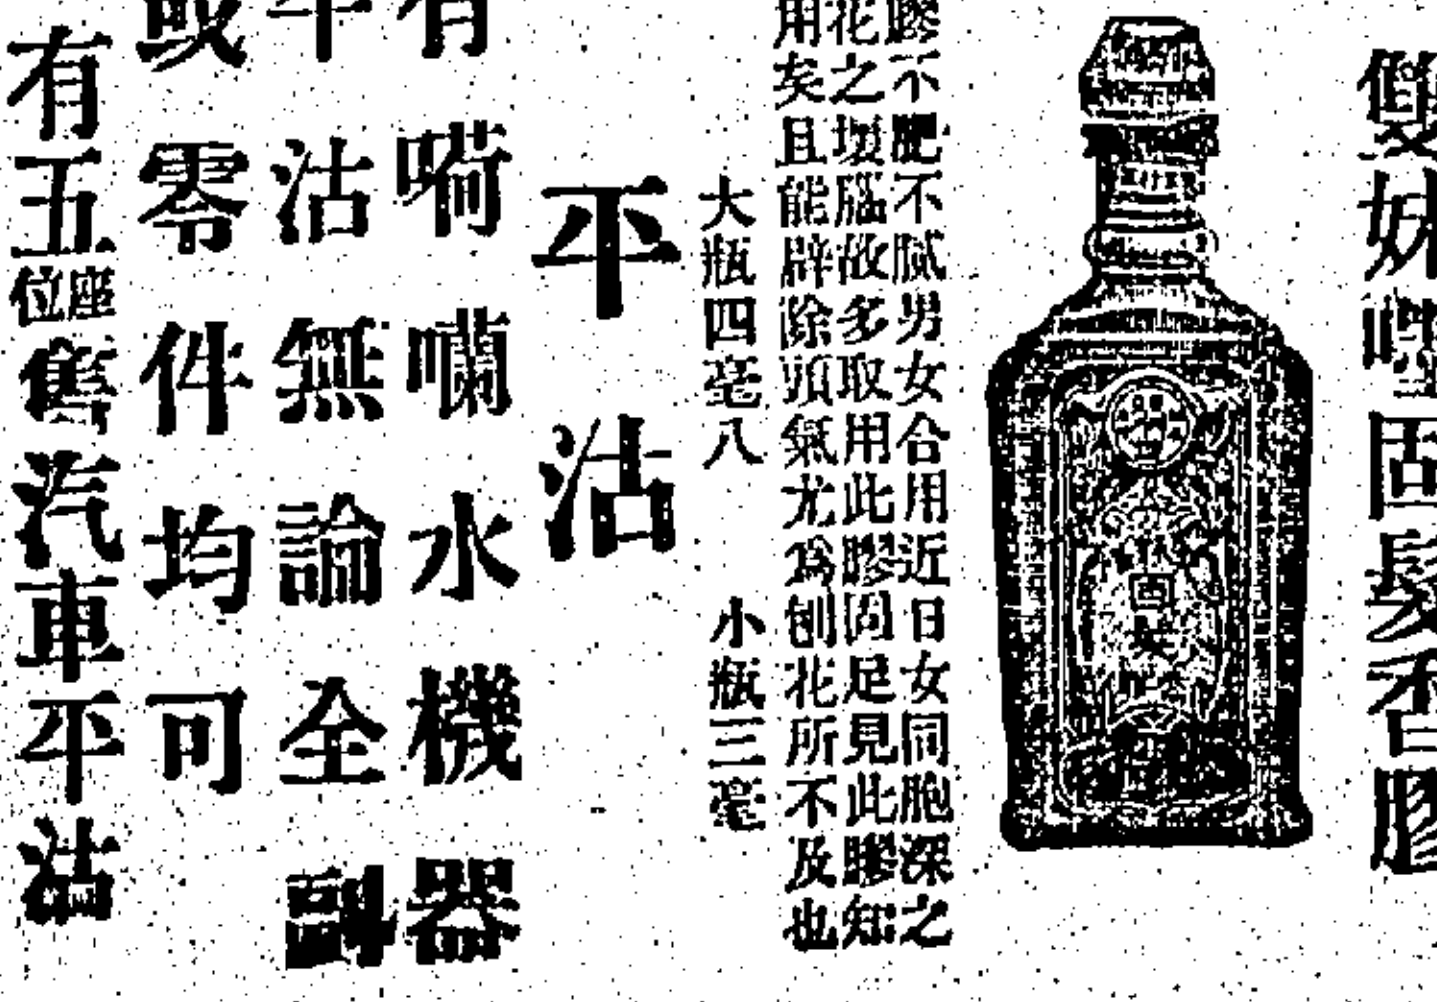 雙妹嘜固髮香膠
膠不肥不膩男女合用近日女同胞深之
花之壞腦故多取用此膠固足見此膠知
用矣且能辟除頭氣尤爲刨花所不及也
大瓶四毫八 小瓶三毫
平沽
有嗬囒水機器
平沽無論全副
或零件均可
有五座位舊汽車平沽